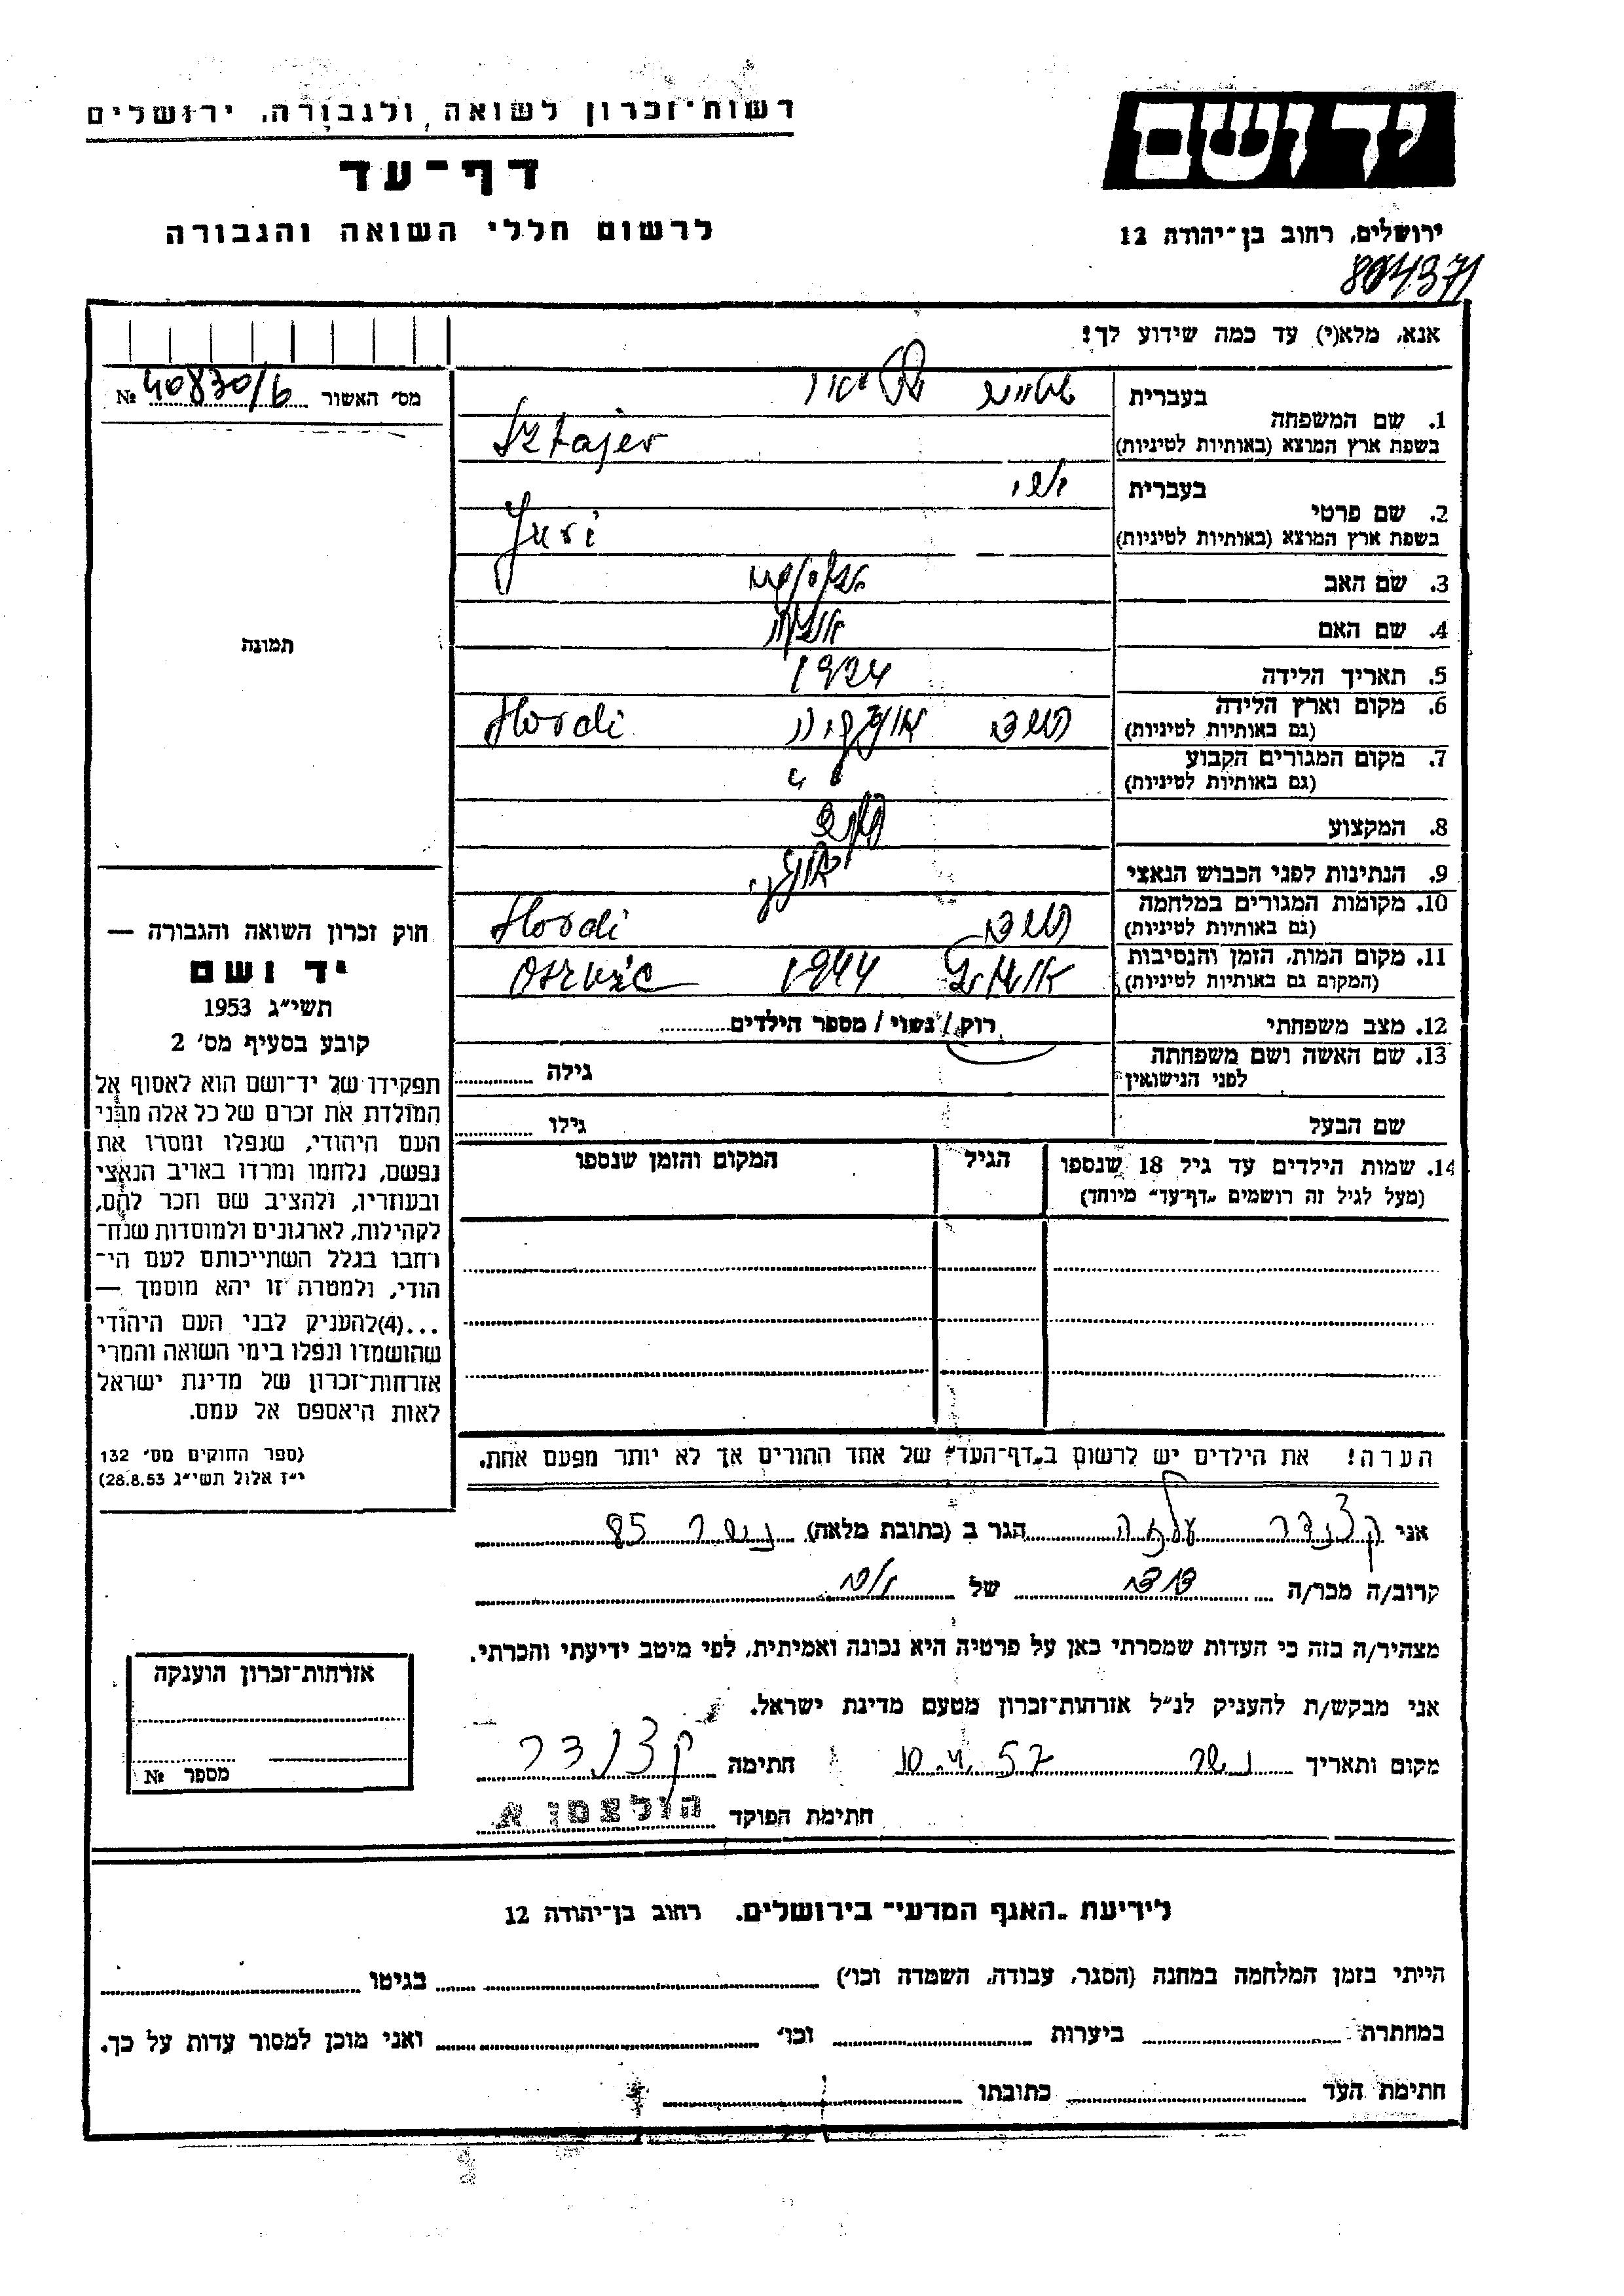 רשות-זכרון לשואה ולגבורה, ירושלים
דף-עד
לרשום חללי השואה והגבורה
יד ושם
ירושלים, רחוב בן-יהודה 12
804371
אנא, מלא(י) עד כמה שידוע לך!
מס' האשור № 40830/6
1. שם המשפחה
בעברית
בשפת ארץ המוצא (באותיות לטיניות) Sztajer
2. שם פרטי
בעברית
בשפת ארץ המוצא (באותיות לטיניות) Juri
3. שם האב
4. שם האם
5. תאריך הלידה 1924
6. מקום וארץ הלידה
(גם באותיות לטיניות) Hordi
7. מקום המגורים הקבוע
(גם באותיות לטיניות)
8. המקצוע
9. הנתינות לפני הכבוש הנאצי
10. מקומות המגורים במלחמה
(גם באותיות לטיניות) Hordi
11. מקום המות, הזמן והנסיבות 1944
(המקום גם באותיות לטיניות)
12. מצב משפחתי רוק / נשוי / מספר הילדים
13. שם האשה ושם משפחתה
לפני הנישואין גילה
שם הבעל גילו
14. שמות הילדים עד גיל 18 שנספו הגיל המקום והזמן שנספו
(מעל לגיל זה רושמים "דף-עד" מיוחד)
תמונה
חוק זכרון השואה והגבורה —
יד ושם
תשי"ג 1953
קובע בסעיף מס' 2
תפקידו של יד-ושם הוא לאסוף אל
המולדת את זכרם של כל אלה מבני
העם היהודי, שנפלו ומסרו את
נפשם, נלחמו ומרדו באויב הנאצי
ובעוזריו, ולהציב שם וזכר להם,
לקהילות, לארגונים ולמוסדות שנח-
רחבו בגלל השתייכותם לעם הי-
הודי, ולמטרה זו יהא מוסמך —
...(4)להעניק לבני העם היהודי
שהושמדו ונפלו בימי השואה והמרי
אזרחות-זכרון של מדינת ישראל
לאות היאספם אל עמם.
(ספר החוקים מס' 132
י"ז אלול תשי"ג 28.8.53)
הערה! את הילדים יש לרשום ב"דף-העד" של אחד ההורים אך לא יותר מפעם אחת.
אני הגר ב (כתובת מלאה) נשר 85
קרוב/ה מכר/ה דודה של
מצהיר/ה בזה כי העדות שמסרתי כאן על פרטיה היא נכונה ואמיתית, לפי מיטב ידיעתי והכרתי.
אני מבקש/ת להעניק לנ"ל אזרחות-זכרון מטעם מדינת ישראל.
מקום ותאריך נשר 10.4.57 חתימה
חתימת הפוקד הולצמן א
אזרחות-זכרון הוענקה
מספר №
לידיעת "האגף המדעי" בירושלים, רחוב בן-יהודה 12
הייתי בזמן המלחמה במחנה (הסגר, עבודה, השמדה וכו') בגיטו
במחתרת ביערות וכו' ואני מוכן למסור עדות על כך.
חתימת העד כתובתו